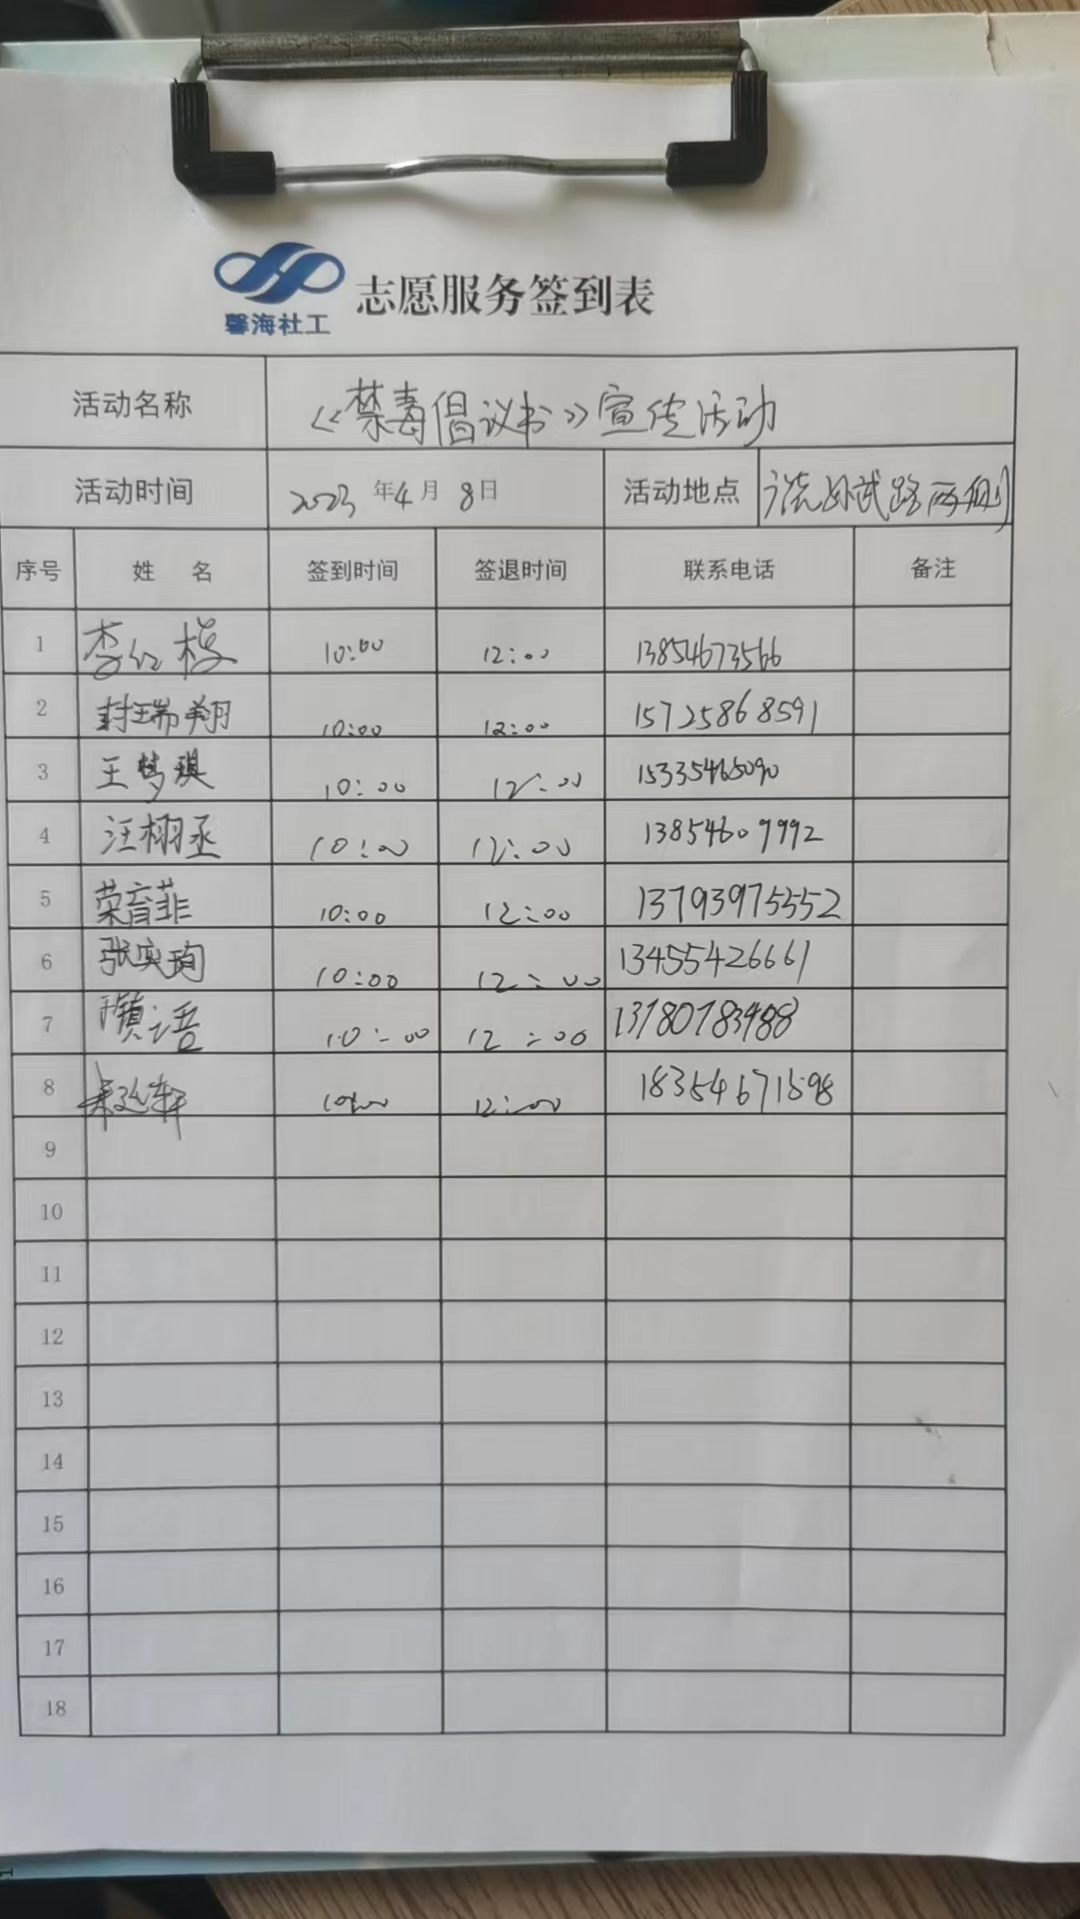 馨海社工
志愿服务签到表
活动名称 《禁毒倡议书》宣传活动
活动时间 2023年4月8日 活动地点 路两侧
序号 姓 名 签到时间 签退时间 联系电话 备注
1 李红梅 10:00 12:00 13854673566
2 封瑞翔 10:00 12:00 15725868591
3 王梦琪 10:00 12:00 15335465090
4 汪栩丞 10:00 12:00 13854609992
5 荣育菲 10:00 12:00 13793975552
6 张奕珣 10:00 12:00 13455426661
7 语 10:00 12:00 13780783488
8 轩 10:00 12:00 18354671598
9
10
11
12
13
14
15
16
17
18